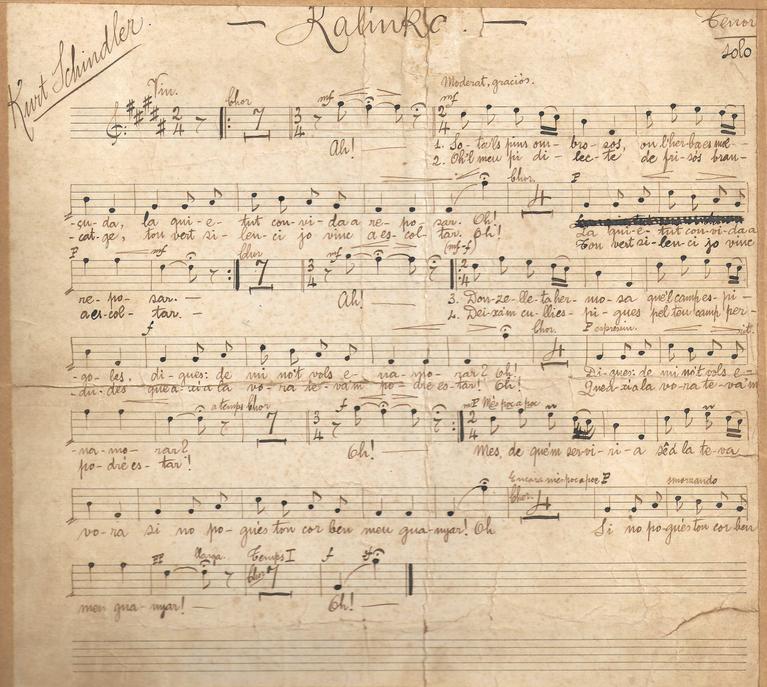 — Kalinka. —
Tenor
solo
Kurt Schindler.
Viu.
Chor
7
mf
Moderat, graciós.
mf
Ah! —
1. So-ta'ls pins om-bro-sos, on l'her-ba es mol-
2. Oh! meu pi di-lec-te de fri-sós bran-
chor.
4
P
-su-da, la qui-e-tut con-vi-da a re-po-sar. Oh!
La qui-e-tut con-vi-da a
-cat-ge, ton vert si-len-ci jo vinc a es-col-tar. Oh!
Ton vert si-len-ci jo vinc
P
mf
chor
7
mf
(mf-f)
re-po-sar. —
Ah! —
3. Don-ze-lle-ta her-mo-sa qu'el camp es-pi-
a es-col-tar. —
4. Deixa'm cu-lli es-pi-gues pel teu camp per-
f
chor.
4
P espressiu.
rit.
-go-les, di-gues: de mi no't vols e-na-mo-rar? Oh!
Di-gues: de mi no't vols e-
-du-des que a-xi a la vo-ra te-va'm po-dré es-tar! Oh!
Que a-xi a la vo-ra te-va'm
a temps
chor
7
f
mP Més poc a poc
-na-mo-rar?
Oh! —
Mes, de que'm ser-vi-ri-a sê d la te-va
po-dré es-tar!
Encara més poc a poc
P
smorzando
chor.
4
vo-ra si no po-gués ton cor ben meu gua-nyar! Oh
Si no po-gués ton cor ben
PP
llarga.
Temps I
chor
7
f
sf
meu gua-nyar! —
Oh! —